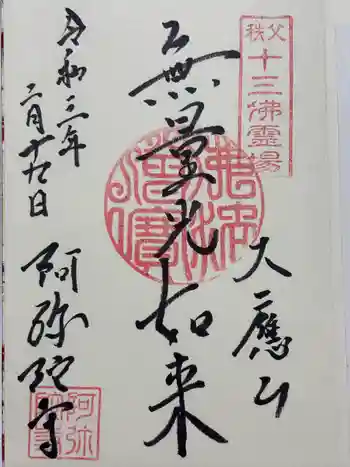 秩父
十三佛霊場
大應山
無量光如来
令和三年
二月十九日
阿弥陀寺
佛法僧寶
阿弥陀寺